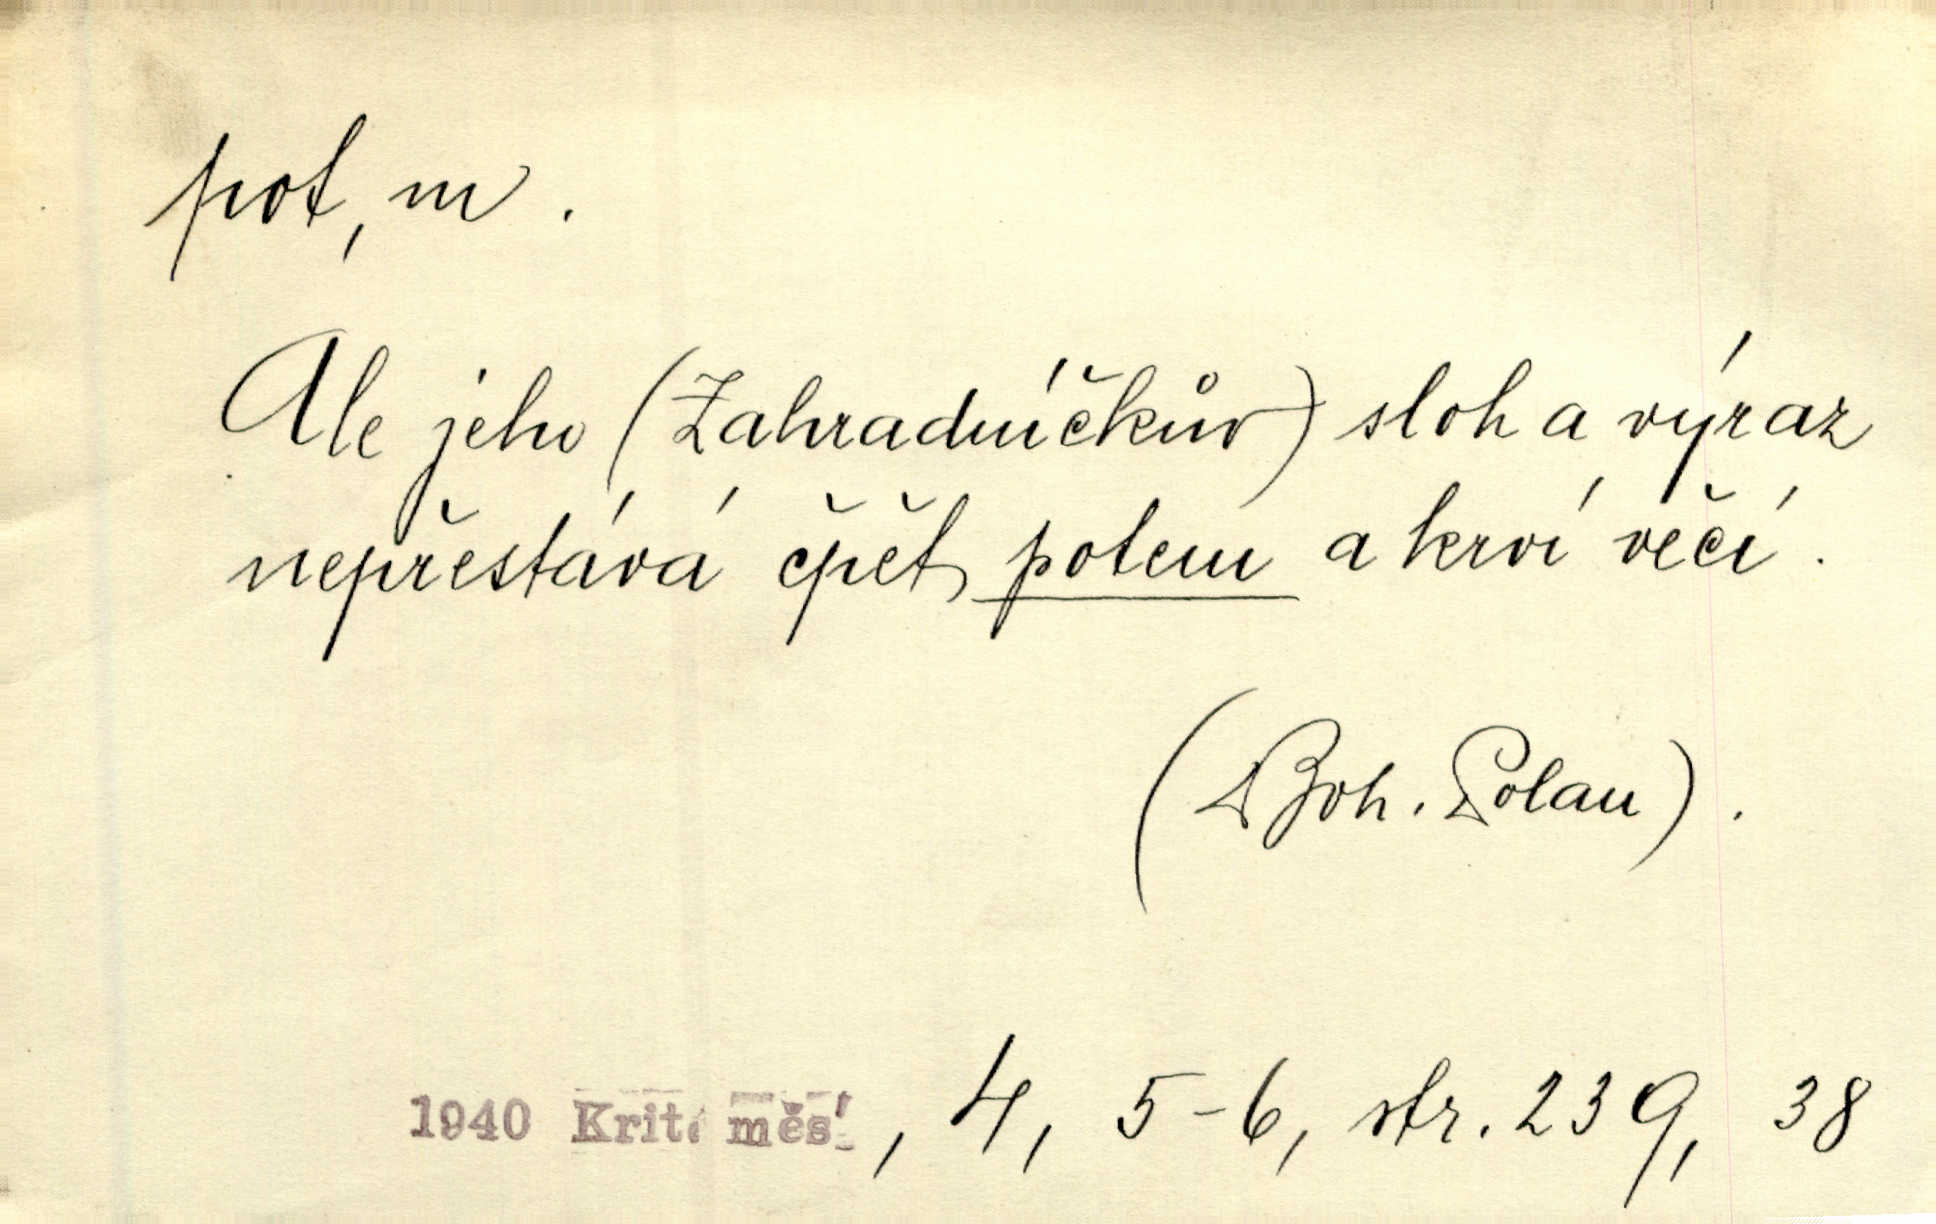 pot, m.
Ale jeho (Zahradníčkův) sloh a výraz
nepřestává čpět potem a krví večí.
(Boh. Polan).
1940 Krit. měs., 4, 5-6, str. 239, 38